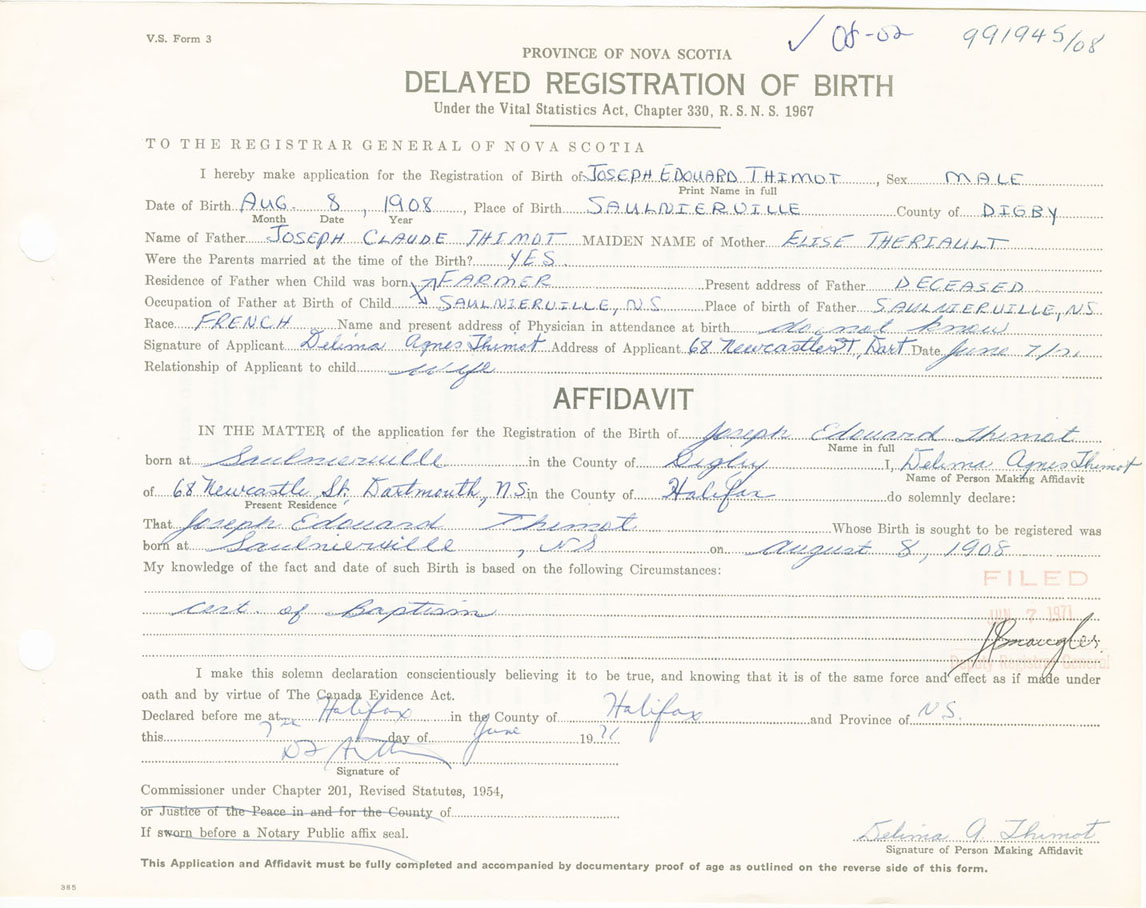 V.S. Form 3
✓ 08-02 991945/08
PROVINCE OF NOVA SCOTIA
DELAYED REGISTRATION OF BIRTH
Under the Vital Statistics Act, Chapter 330, R.S.N.S. 1967
TO THE REGISTRAR GENERAL OF NOVA SCOTIA
I hereby make application for the Registration of Birth of JOSEPH EDOUARD THIMOT, Sex MALE
Print Name in full
Date of Birth AUG. 8, 1908, Place of Birth SAULNIERVILLE County of DIGBY
Month Date Year
Name of Father JOSEPH CLAUDE THIMOT MAIDEN NAME of Mother ELISE THERIAULT
Were the Parents married at the time of the Birth? YES
Residence of Father when Child was born FARMER Present address of Father DECEASED
Occupation of Father at Birth of Child SAULNIERVILLE, N.S. Place of birth of Father SAULNIERVILLE, NS
Race FRENCH Name and present address of Physician in attendance at birth do not know
Signature of Applicant Delima Agnes Thimot Address of Applicant 68 Newcastle St, Dart Date June 7/71
Relationship of Applicant to child wife
AFFIDAVIT
IN THE MATTER of the application for the Registration of the Birth of Joseph Edouard Thimot
Name in full
born at Saulnierville in the County of Digby I, Delima Agnes Thimot
Name of Person Making Affidavit
of 68 Newcastle St. Dartmouth, N.S. in the County of Halifax do solemnly declare:
Present Residence
That Joseph Edouard Thimot Whose Birth is sought to be registered was
born at Saulnierville, NS on August 8, 1908
My knowledge of the fact and date of such Birth is based on the following Circumstances:
FILED
cert. of Baptism
JUN 7 1971
Deputy Registrar General
I make this solemn declaration conscientiously believing it to be true, and knowing that it is of the same force and effect as if made under
oath and by virtue of The Canada Evidence Act.
Declared before me at Halifax in the County of Halifax and Province of N.S.
this 7th day of June 1971
Signature of
Commissioner under Chapter 201, Revised Statutes, 1954,
or Justice of the Peace in and for the County of
If sworn before a Notary Public affix seal.
Delima A. Thimot
Signature of Person Making Affidavit
This Application and Affidavit must be fully completed and accompanied by documentary proof of age as outlined on the reverse side of this form.
385